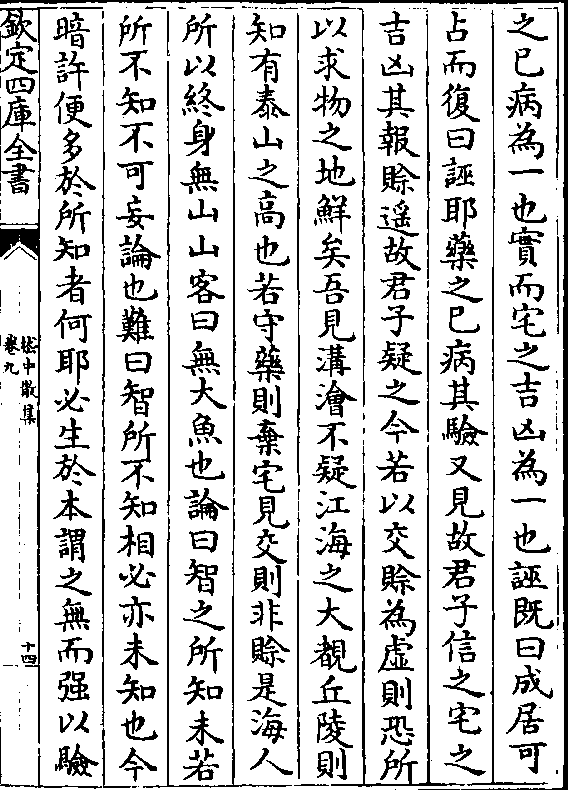 之已病為一也實而宅之吉凶為一也誣既曰成居可
占而復曰誣耶藥之已病其驗又見故君子信之宅之
吉凶其報賒遥故君子疑之今若以交賒為虚則恐所
以求物之地鮮矣吾見溝澮不疑江海之大覩丘陵則
知有泰山之高也若守藥則棄宅見交則非賒是海人
所以終身無山山客曰無大魚也論曰智之所知未若
所不知不可妄論也難曰智所不知相必亦未知也今
暗許便多於所知者何耶必生於本謂之無而强以驗
欽定四庫全書
嵇中散集
卷九
十四